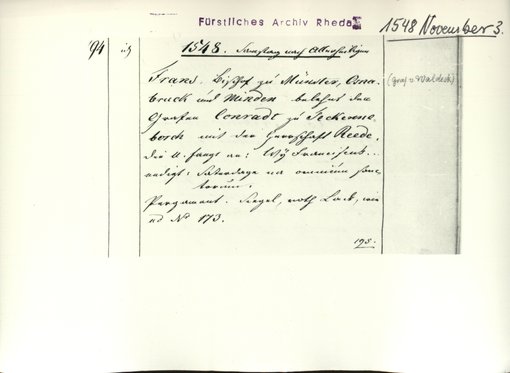 Fürstliches Archiv Rheda
1548 November 3.
94
1548. Samstag nach Allerheiligen
Franz, Bischof zu Münster, Osna-
bruck und Minden belehnt den
(Graf v Waldeck)
Grafen Conradt zu Teckenne-
borch mit der Herrschaft Reede,
die U. fangt an: Wÿ Franciscus...
endigt: Saterdage na omnium sanc-
torum.
Pergament. Siegel, roth Lack, wie
ad No 173.
195.